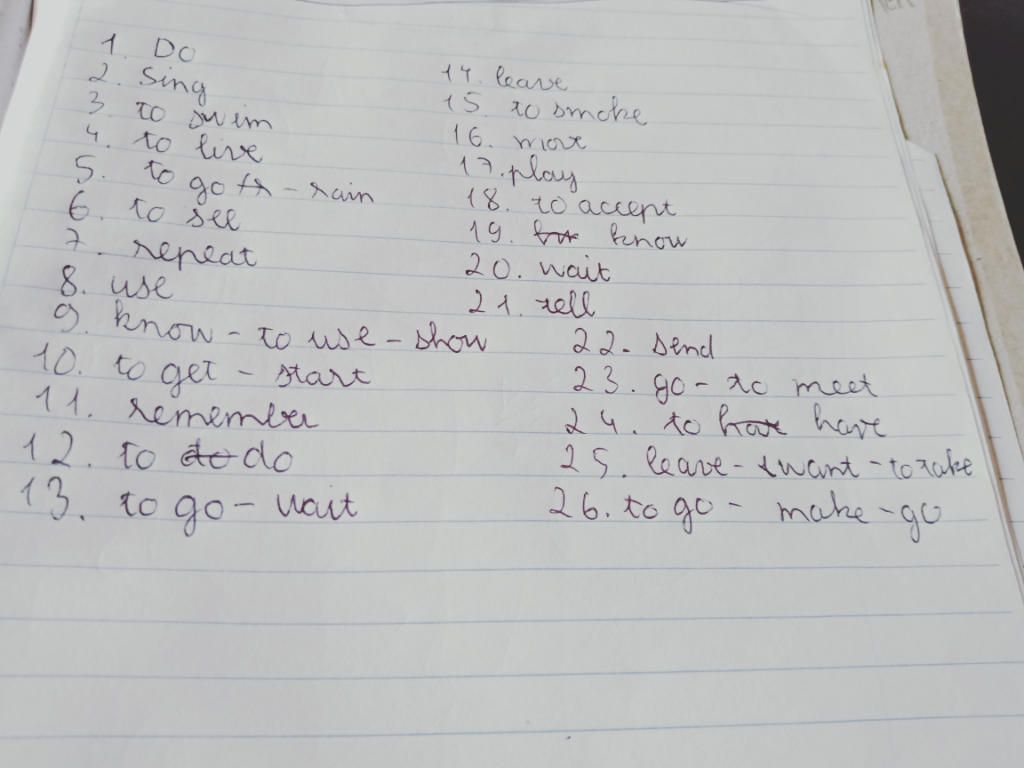 1. Do
2. Sing
3. to swim
4. to live
5. to go - rain
6. to see
7. repeat
8. use
9. know - to use - show
10. to get - start
11. remember
12. to do do
13. to go - wait
14. leave
15. to smoke
16. move
17. play
18. to accept
19. know
20. wait
21. tell
22. send
23. go - to meet
24. to have have
25. leave - want - to take
26. to go - make - go